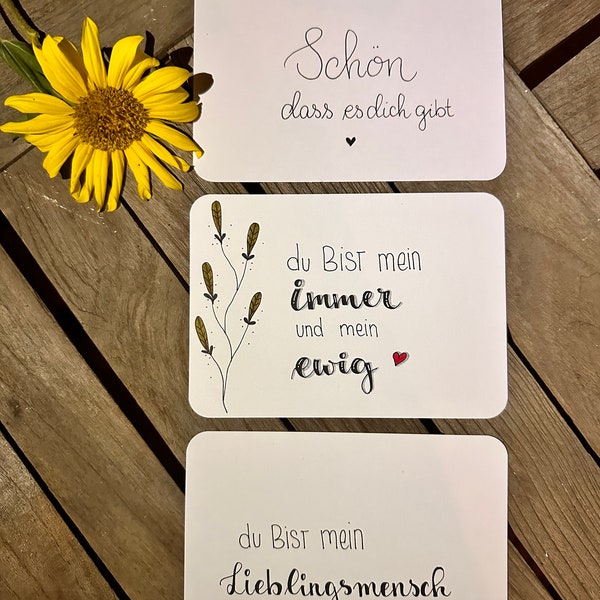 Schön
dass es dich gibt
du BIST mein
immer
und mein
ewig
du BIST mein
Lieblingsmensch